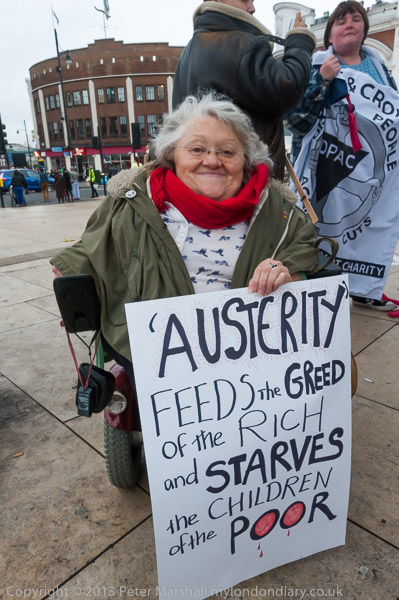 'AUSTERITY'
FEEDS the GREED
of the RICH
and STARVES
the CHILDREN
of the POOR
& CRO
PEOPLE
DPAC
CUTS
CHARITY
Copyright © 2013 Peter Marshall mylondondiary.co.uk